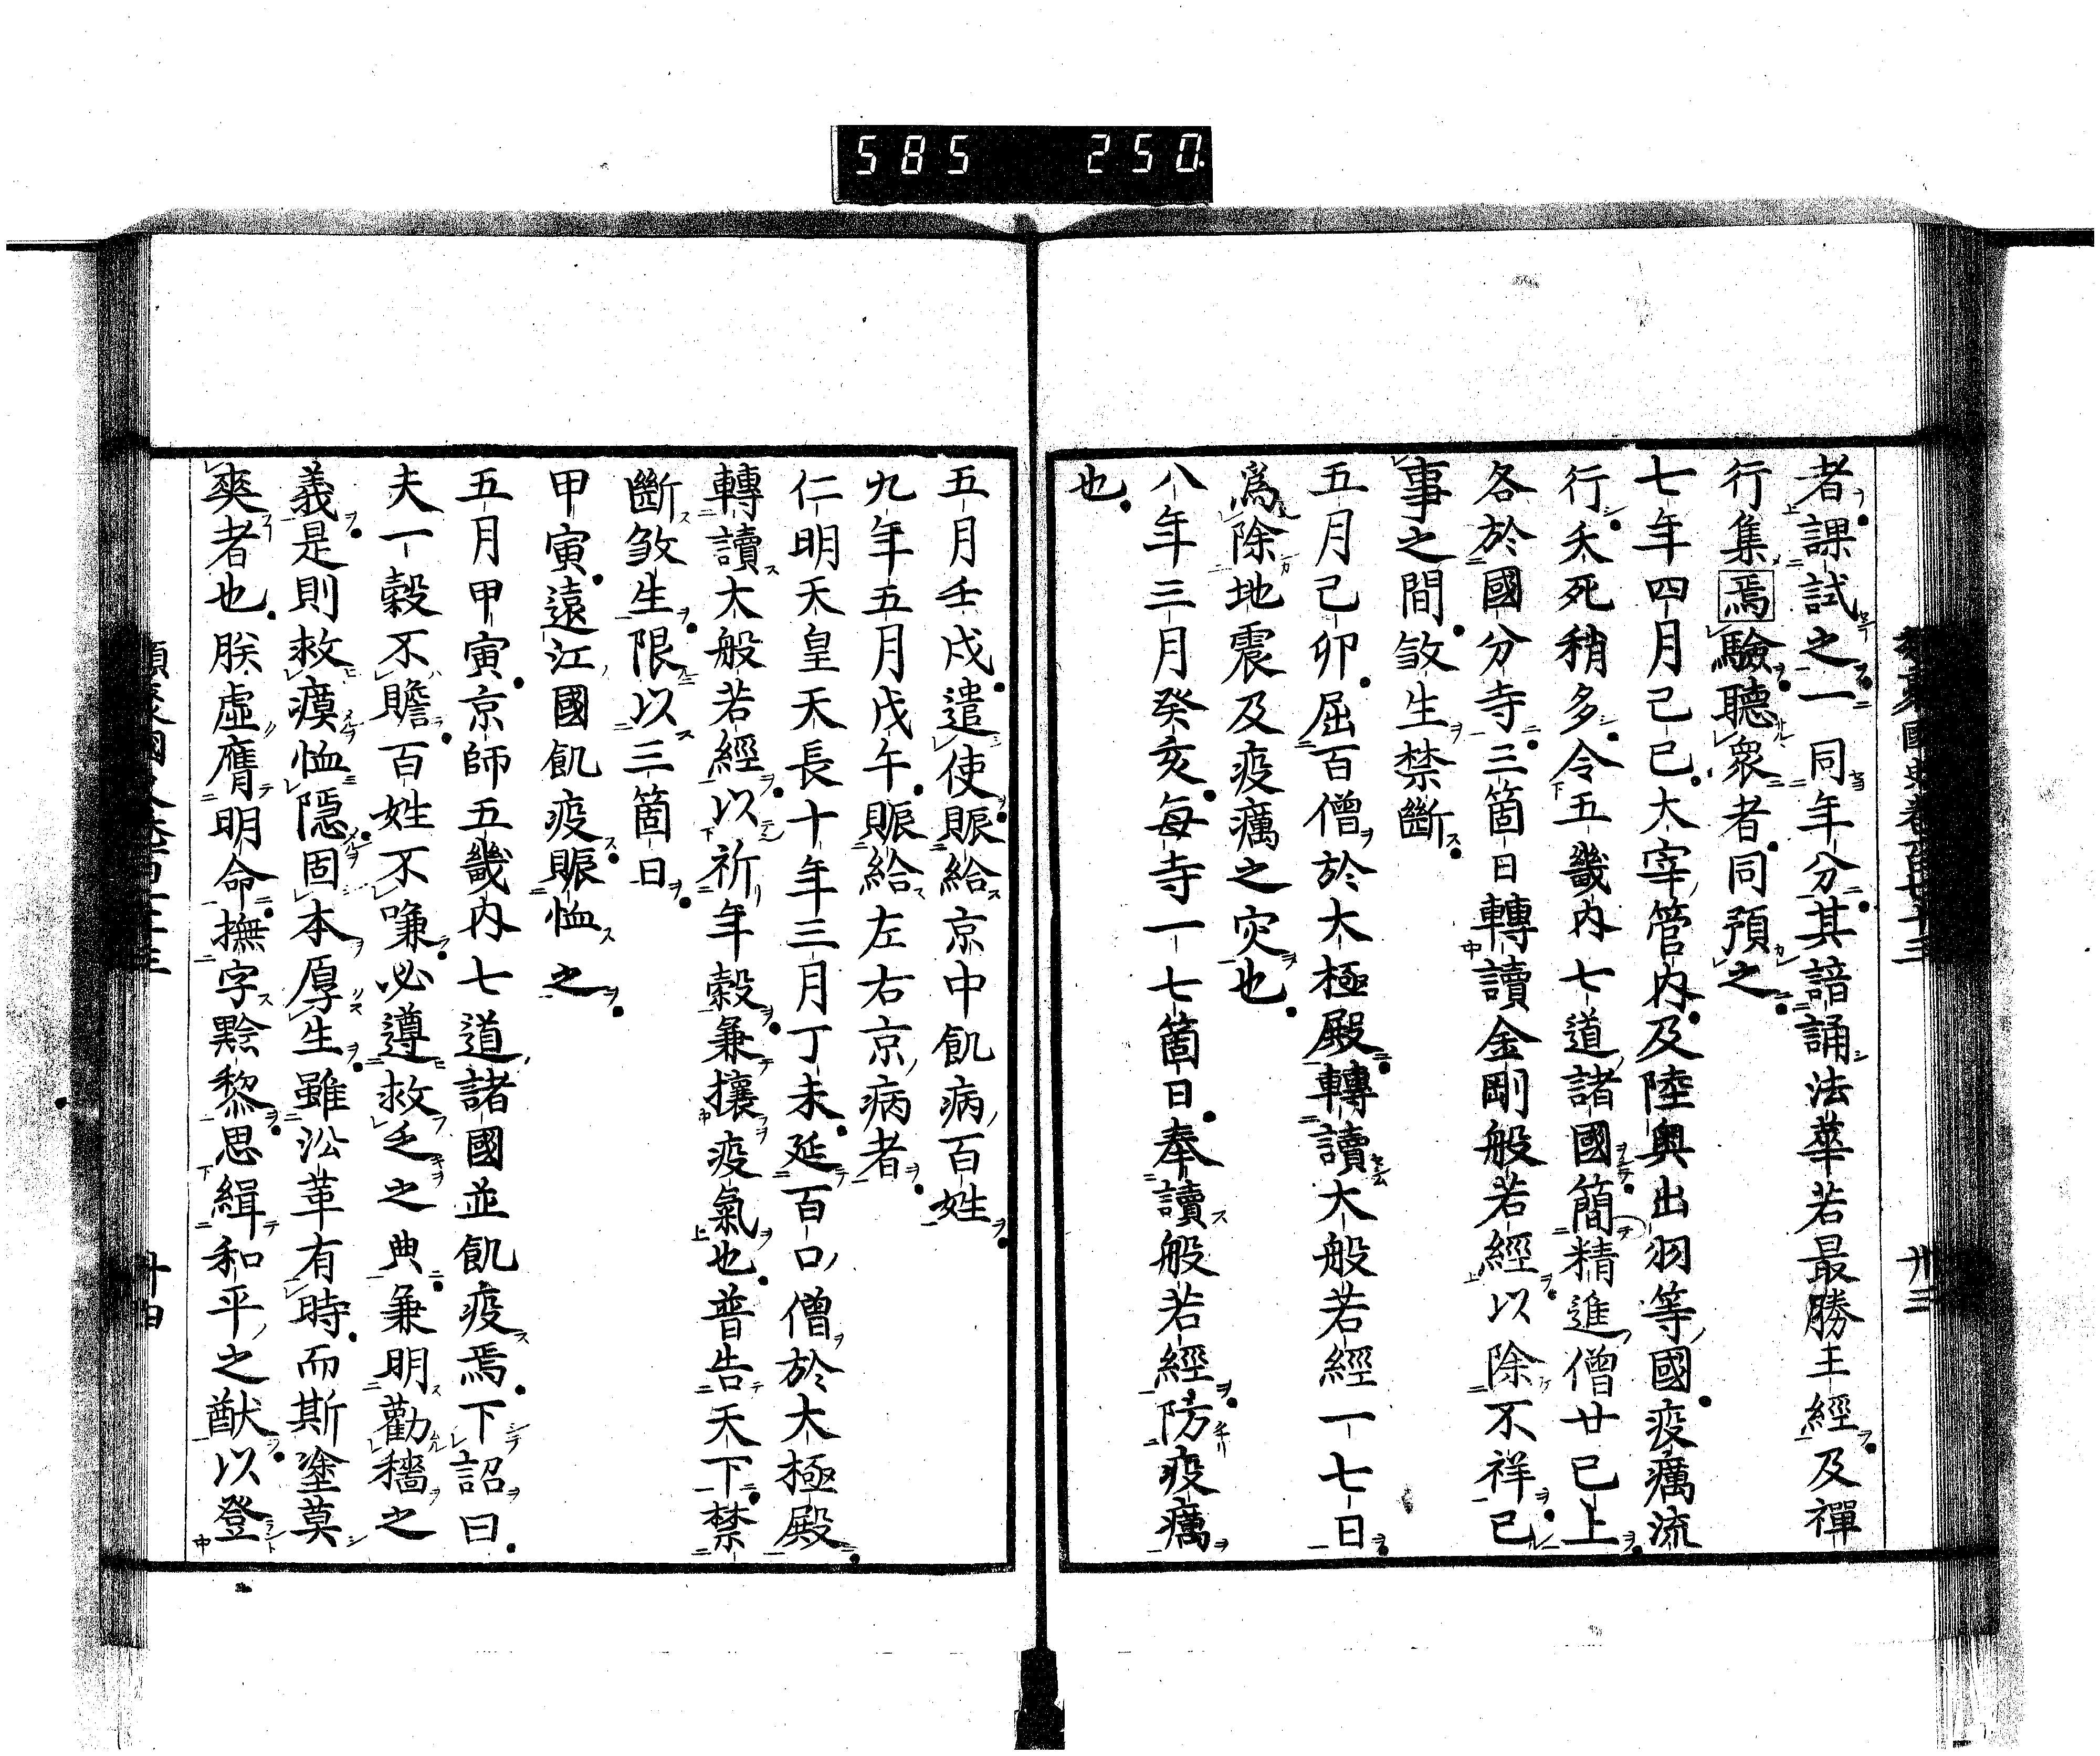 585 250
者課試之一同年分其諳誦法華若最勝王經及禪
行集焉驗聽衆者同預之
七年四月己巳大宰管内及陸奧出羽等國疫癘流
行夭死稍多令五畿内七道諸國簡精進僧廿已上
各於國分寺三箇日轉讀金剛般若經以除不祥已
事之間敛生禁斷
五月己卯屈百僧於大極殿轉讀大般若經一七日
爲除地震及疫癘之灾也
八年三月癸亥每寺一七箇日奉讀般若經防疫癘
也
五月壬戌遣使賑給京中飢病百姓
九年五月戊午賑給左右京病者
仁明天皇天長十年三月丁未延百口僧於大極殿
轉讀大般若經以祈年穀兼攘疫氣也普告天下禁
斷敛生限以三箇日
甲寅遠江國飢疫賑恤之
五月甲寅京師五畿内七道諸國並飢疫焉下詔曰
夫一穀不贍百姓不嗛必遵救乏之典兼明勸穡之
義是則救瘼恤隱固本厚生雖沿革有時而斯塗莫
爽者也朕虛膺明命撫字黔黎思緝和平之猷以登